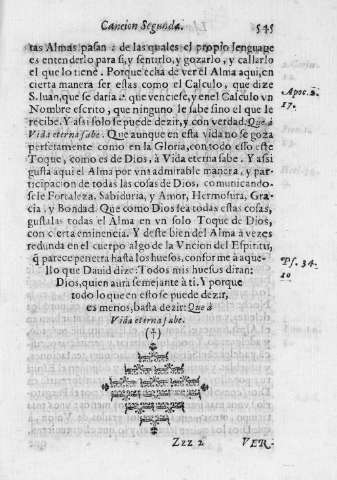 Cancion Segunda. 545
tas Almas pasan: de las quales el propio lenguage
es entenderlo para si, y sentirlo, y gozarlo, y callarlo
el que lo tiene. Porque echa de ver el Alma aqui, en
cierta manera ser estas como el Calculo, que dize
S. Iuan, que se daria à que venciese, y en el Calculo vn
Nombre escrito, que ninguno le sabe sino el que le
recibe. Y asi solo se puede dezir, y con verdad. Que à
Vida eterna sabe. Que aunque en esta vida no se goza
perfetamente como en la Gloria, con todo esso este
Toque, como es de Dios, à Vida eterna sabe. Y assi
gusta aqui el Alma por vna admirable manera, y par-
ticipacion de todas las cosas de Dios, comunicando-
sele Fortaleza, Sabiduria, y Amor, Hermosura, Gra-
cia, y Bondad. Que como Dios sea todas estas cosas,
gustalas todas el Alma en vn solo Toque de Dios,
con cierta eminencia. Y deste bien del Alma à vezes
redunda en el cuerpo algo de la Vncion del Espiritu,
q̃ parece penetra hasta los huesos, conforme à aque-
llo que Dauid dize: Todos mis huesos diran:
Dios, quien aurà semejante à ti. Y porque
todo lo que en esto se puede dezir,
es menos, basta dezir: Que à
Vida eterna sabe.
(†)
Apoc. 2.
17.
Ps. 34.
10
Zzz 2 VER-